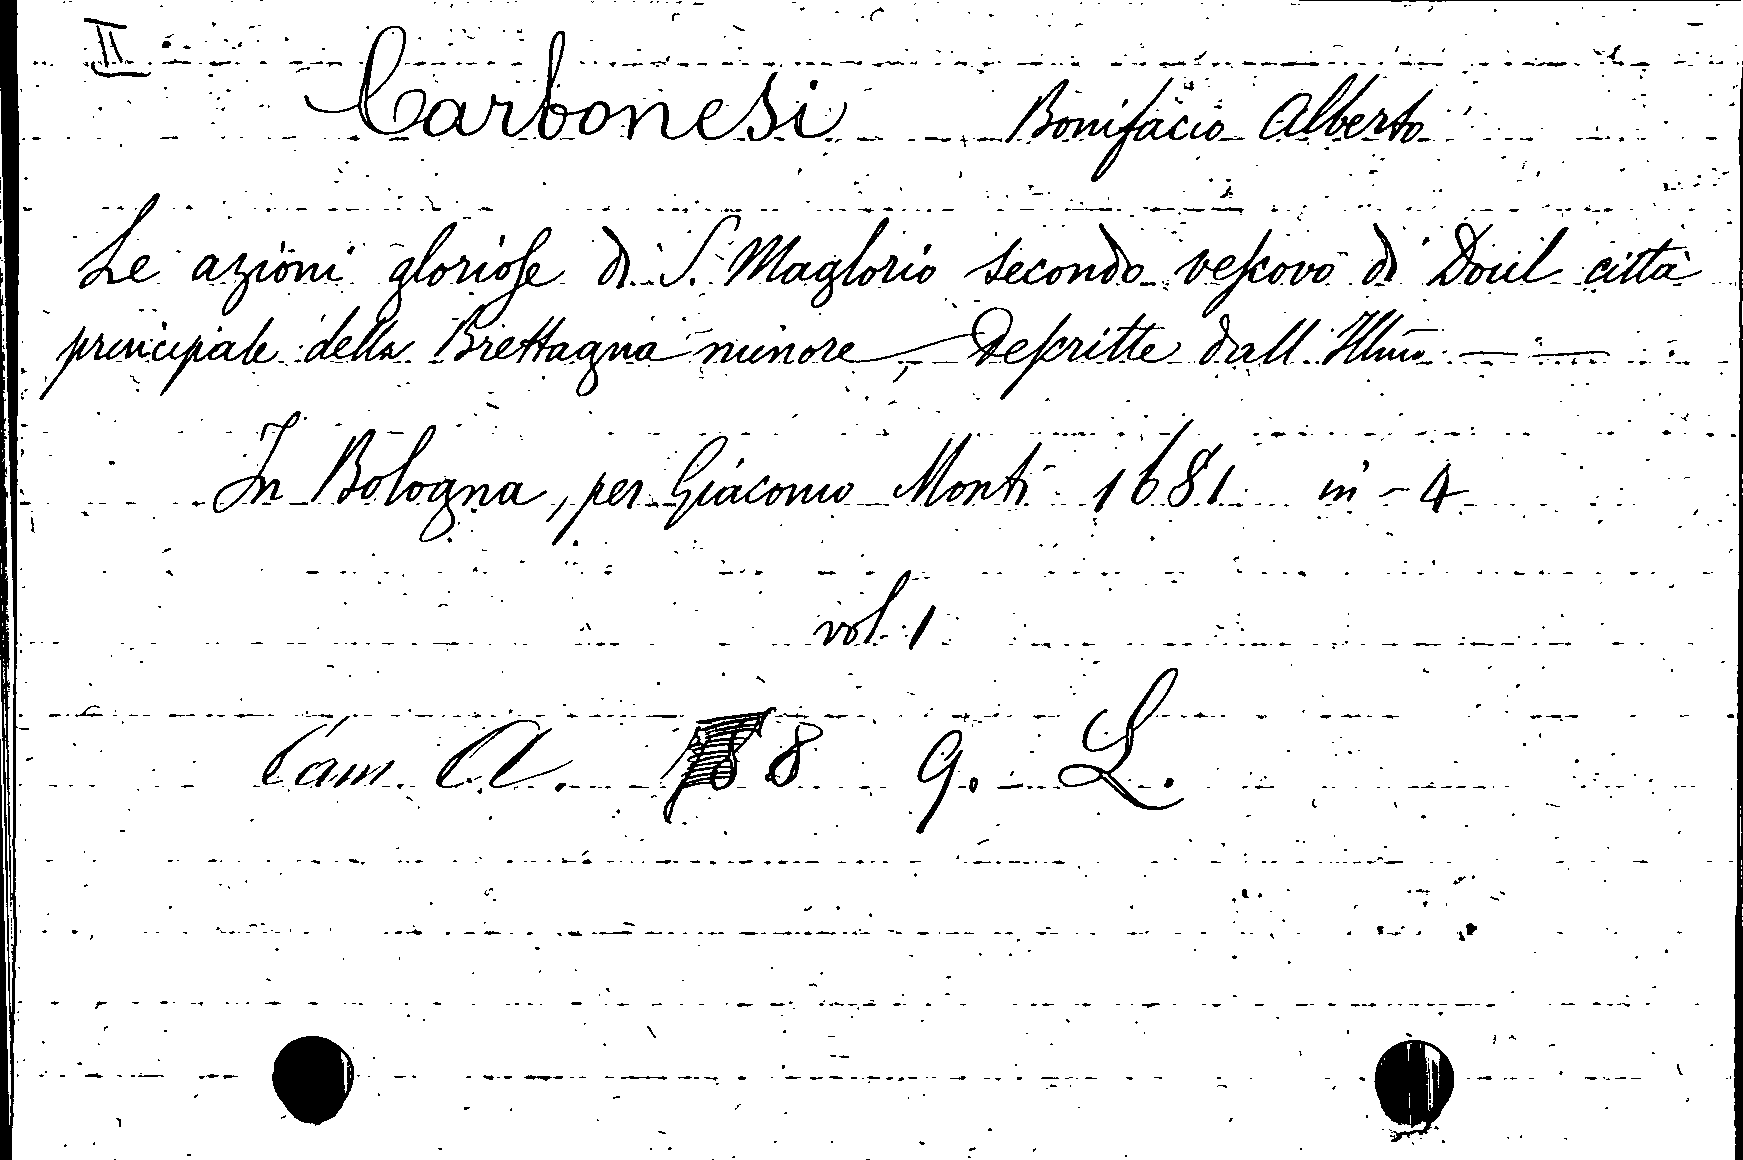 II
Carbonesi Bonifacio Alberto
Le azioni glorioſe di S. Maglorio secondo veſcovo di Doul città
principale della Brettagna minore, Deſcritte dall Illmo — —
In Bologna, per Giacomo Monti 1681 in - 4
vol. 1
Cam. A. 8 g. L.